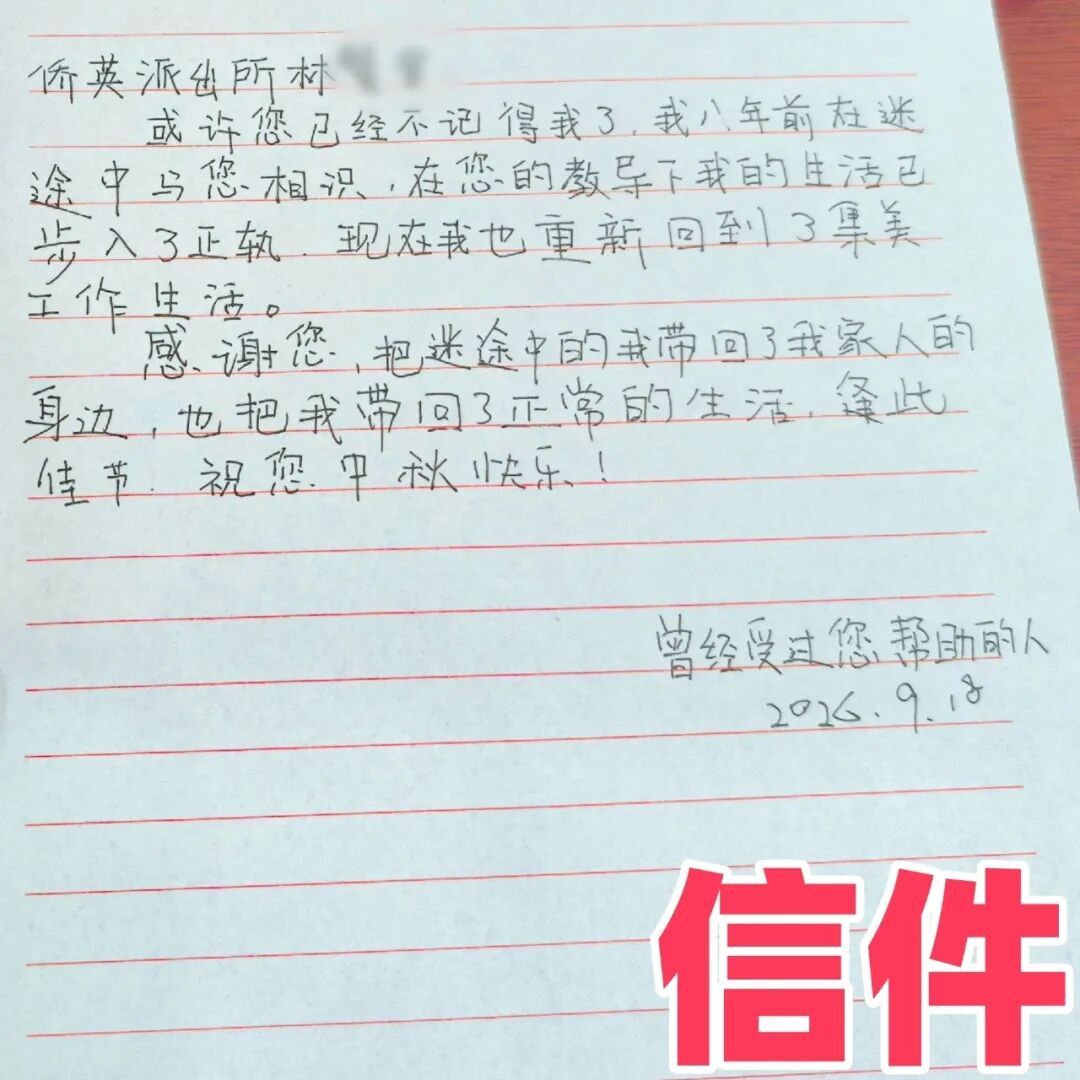 侨英派出所林
或许您已经不记得我了，我八年前在迷
途中与您相识，在您的教导下我的生活已
步入了正轨．现在我也重新回到了集美
工作生活。
感谢您，把迷途中的我带回了我家人的
身边，也把我带回了正常的生活，逢此
佳节．祝您中秋快乐！
曾经受过您帮助的人
2026.9.18
信件